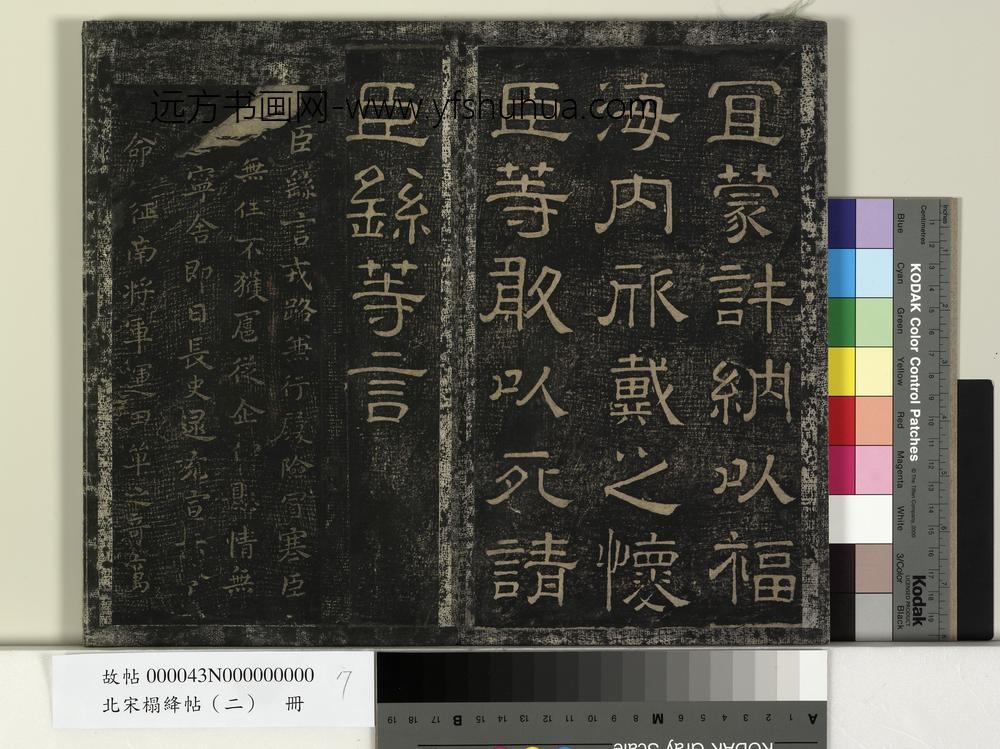 宜蒙許納以福
海内欣戴之懷
臣等敢以死請
臣繇等言
臣繇言戎路兼行履險冒寒臣
無任不獲扈從企佇懸情無
寧舍即日長史逯充宣示
命征南將軍運田單之奇
远方书画网-www.yfshuhua.com
故帖 000043N000000000
北宋榻絳帖（二） 冊
7
KODAK Color Control Patches
© The Tiffen Company, 2000
Kodak
LICENSED PRODUCT
Inches
Centimetres
Blue
Cyan
Green
Yellow
Red
Magenta
White
3/Color
Black
KODAK Gray Scale
A 1 2 3 4 5 6 M 8 9 10 11 12 13 14 15 B 17 18 19